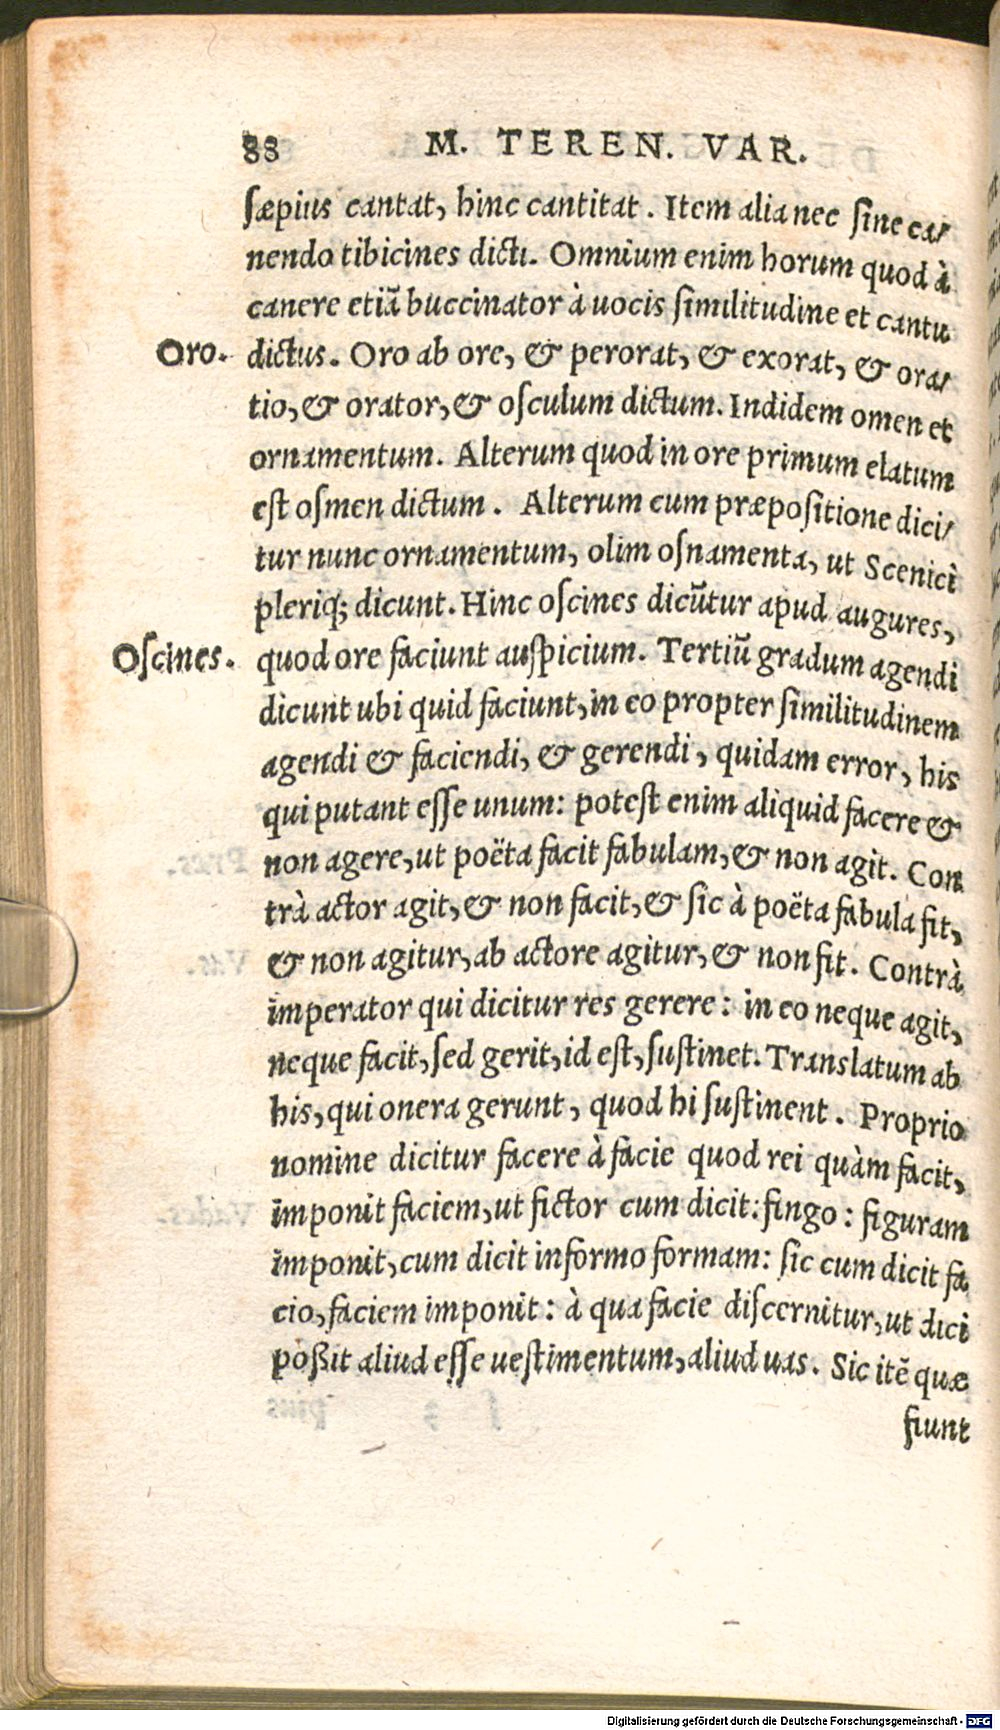 88 M. TEREN. VAR.
sæpius cantat, hinc cantitat. Item alia nec sine ca/
nendo tibicines dicti. Omnium enim horum quod à
canere etiã buccinator à uocis similitudine et cantu
Oro. dictus. Oro ab ore, & perorat, & exorat, & ora/
tio, & orator, & osculum dictum. Indidem omen et
ornamentum. Alterum quod in ore primum elatum
est osmen dictum. Alterum cum præpositione dici/
tur nunc ornamentum, olim osnamenta, ut Scenici
pleriq; dicunt. Hinc oscines dicũtur apud augures,
Oscines. quod ore faciunt auspicium. Tertiũ gradum agendi
dicunt ubi quid faciunt, in eo propter similitudinem
agendi & faciendi, & gerendi, quidam error, his
qui putant esse unum: potest enim aliquid facere &
non agere, ut poëta facit fabulam, & non agit. Con
trà actor agit, & non facit, & sic à poëta fabula fit,
& non agitur, ab actore agitur, & non fit. Contrà
imperator qui dicitur res gerere: in eo neque agit,
neque facit, sed gerit, id est, sustinet. Translatum ab
his, qui onera gerunt, quod hi sustinent. Proprio
nomine dicitur facere à facie quod rei quàm facit,
imponit faciem, ut fictor cum dicit: fingo: figuram
imponit, cum dicit informo formam: sic cum dicit fa
cio, faciem imponit: à qua facie discernitur, ut dici
poßit aliud esse uestimentum, aliud uas. Sic itẽ quæ
fiunt
Digitalisierung gefördert durch die Deutsche Forschungsgemeinschaft - DFG